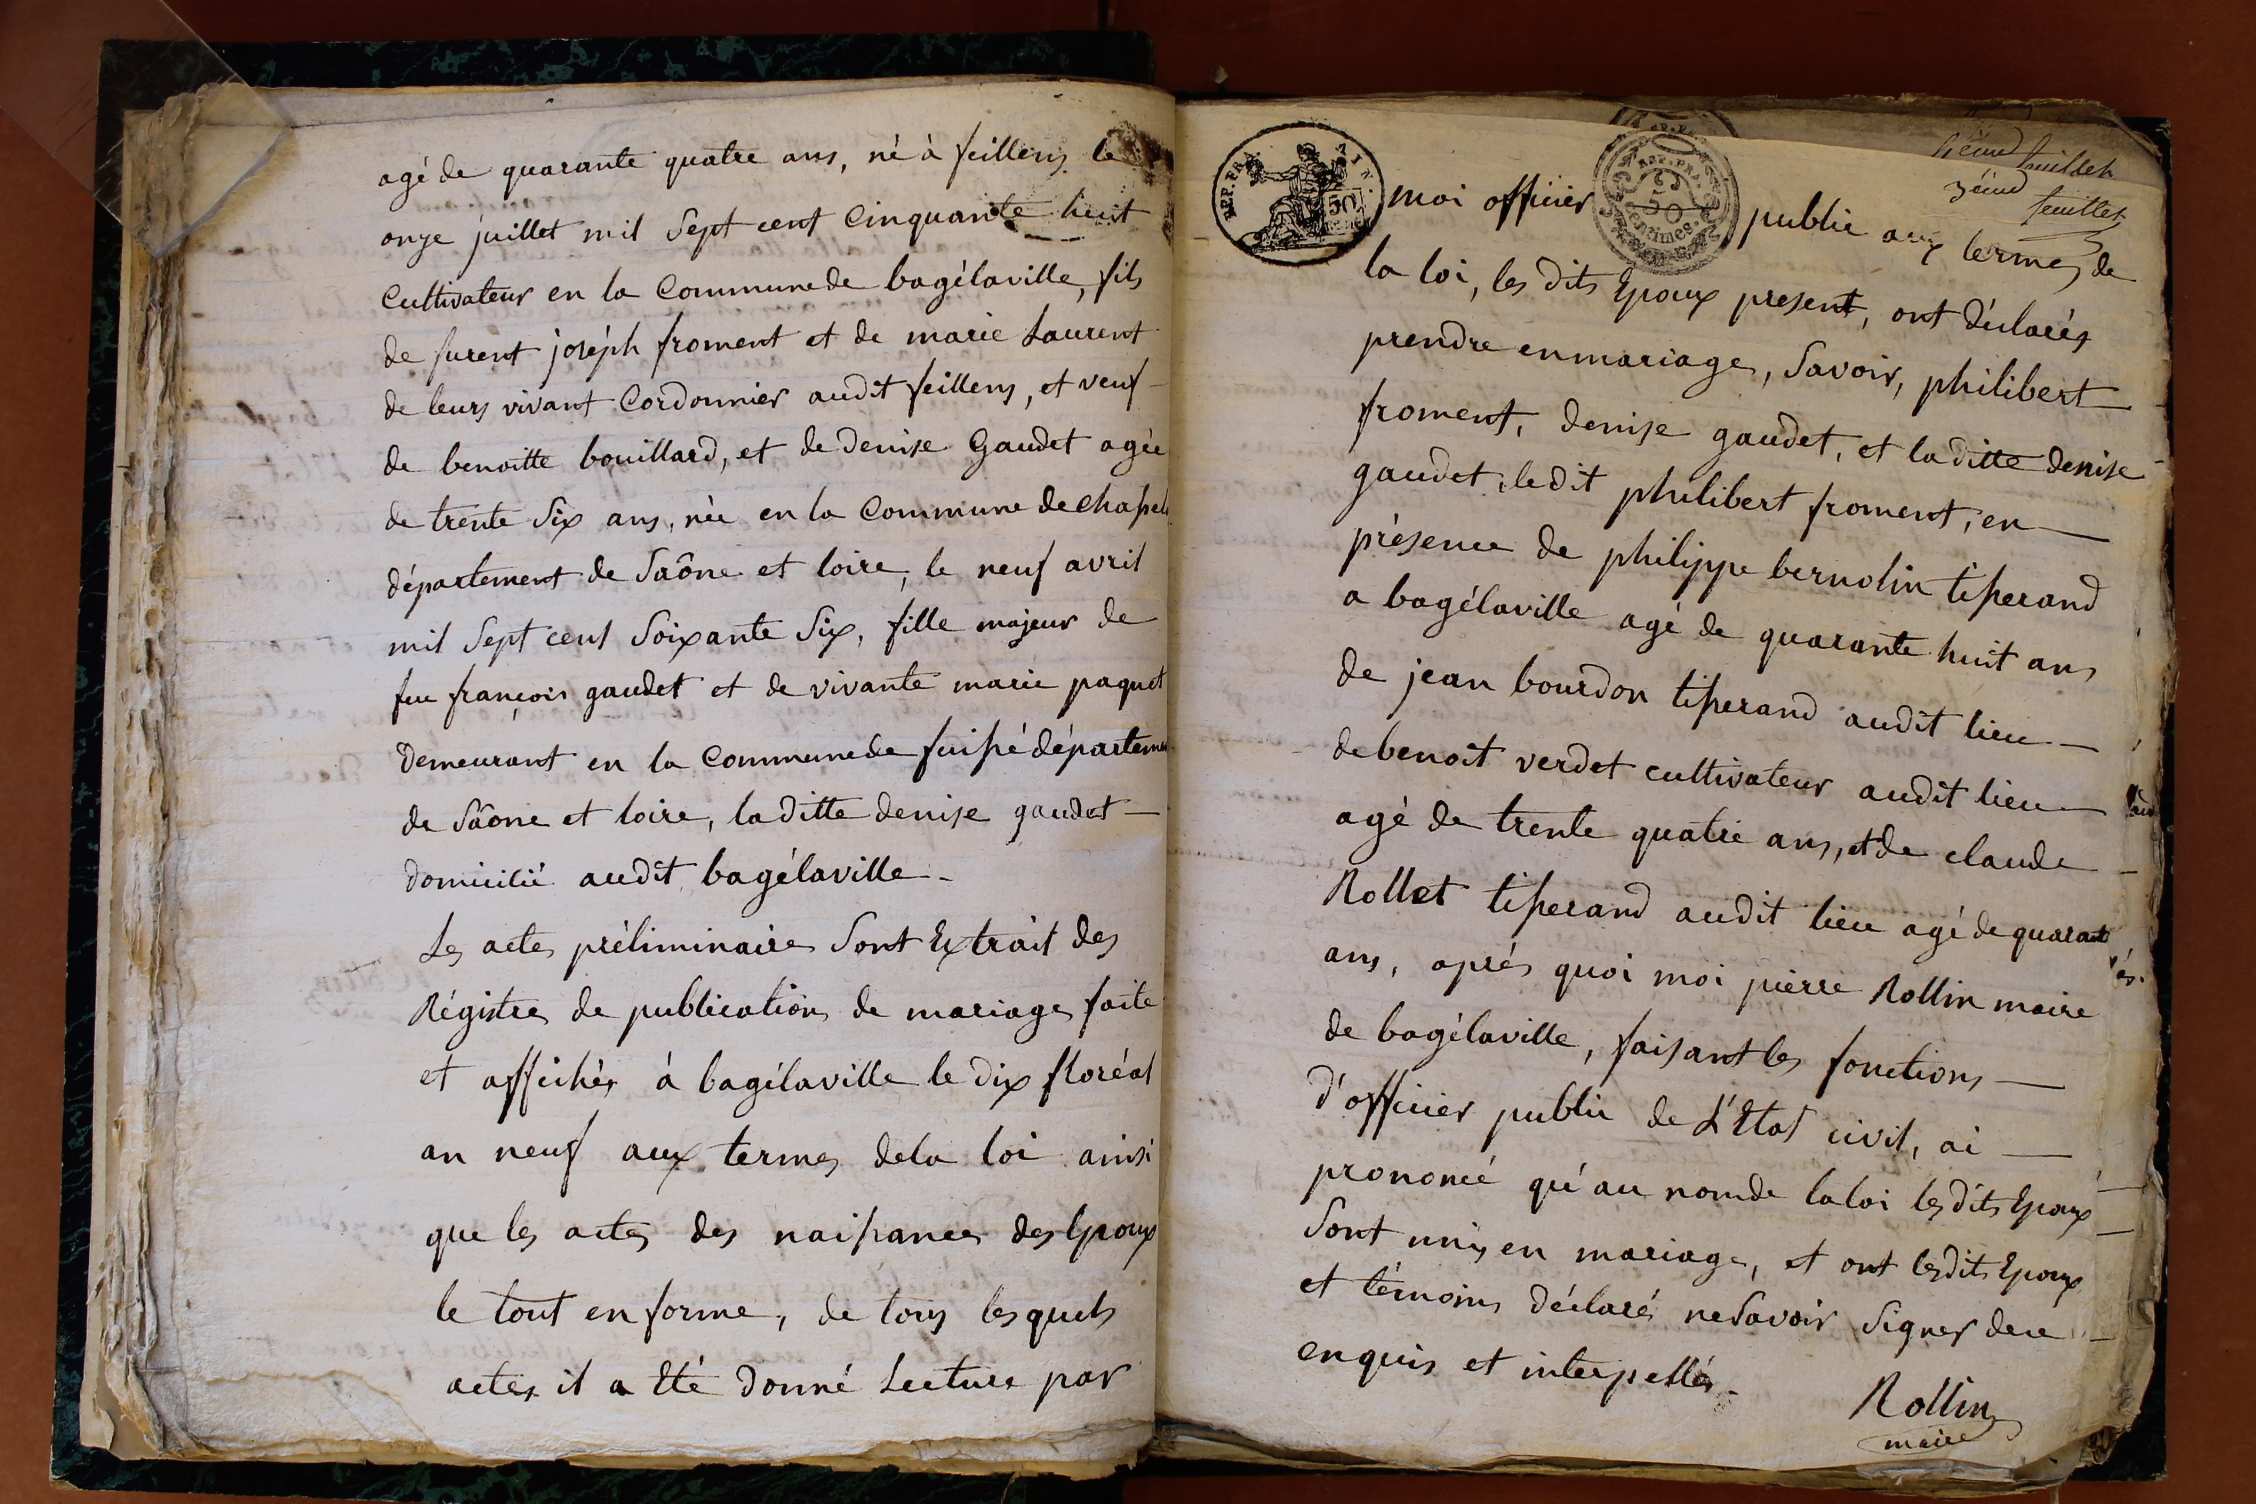 agé de quarante quatre ans, né à feillens le
onze juillet mil Sept cent Cinquante huit
Cultivateur en la Commune de bagélaville, fils
de furent joséph froment et de marie Laurent
de leurs vivant Cordonnier audit feillens, et veuf
de benoitte bouillard, et de Denise Gaudet agée
de trente Six ans, née en la Commune de
département de Saône et loire, le neuf avril
mil Sept cent Soixante Six, fille majeur de
feu françois gaudet et de vivante marie paquet
Demeurant en la Commune de département
de Saône et loire, la ditte denise gaudet
domicilié audit bagélaville
Les actes préliminaires Sont Extrait des
Régistres de publications de mariages faite
et affichés à bagélaville le dix floréal
an neuf aux termes de la loi ainsi
que les actes des naissances des Epoux
le tout en forme, de tous lesquels
actes il a Eté donné Lecture par
4éme feuillet
3éme
feuillet
REP. FRA.
50
50
Centimes
moi officier public aux termes de
la loi, les dits Epoux present, ont déclarés
prendre en mariage, Savoir, philibert
froment, denise gaudet, et la ditte denise
gaudet, le dit philibert froment, en
présence de philippe bernolin tisserand
a bagélaville agé de quarante huit ans
de jean bourdon tisserand audit lieu
de benoit verdet cultivateur audit lieu
agé de trente quatre ans, et de claude
Rollet tisserand audit lieu agé de quarante
ans, aprés quoi moi pierre Rollin maire
de bagélaville, faisant les fonctions
d'officier public de L'Etat civil, ai
prononcé qu'au nom de la loi les dits Epoux
Sont unis en mariage, et ont lesdits Epoux
et témoins déclaré ne Savoir Signer de ce
enquis et interpellés
Rollin
maire